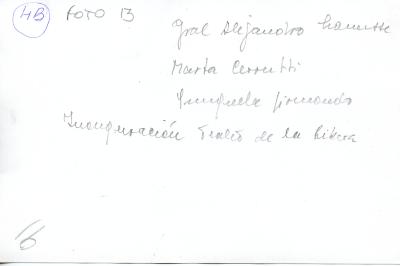 4B FOTO 13
Gral Alejandro Lanusse
Marta Cerrutti
Quinquela firmando
Inauguración Teatro de la Ribera